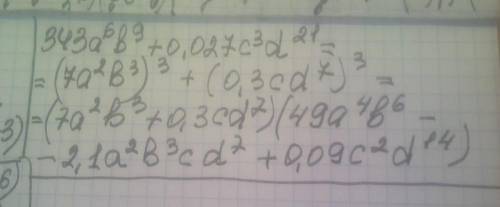 343a⁶b⁹ + 0,027c³d²¹ =
= (7a²b³)³ + (0,3cd⁷)³ =
3) = (7a²b³ + 0,3cd⁷)(49a⁴b⁶ –
6) – 2,1a²b³cd⁷ + 0,09c²d¹⁴)